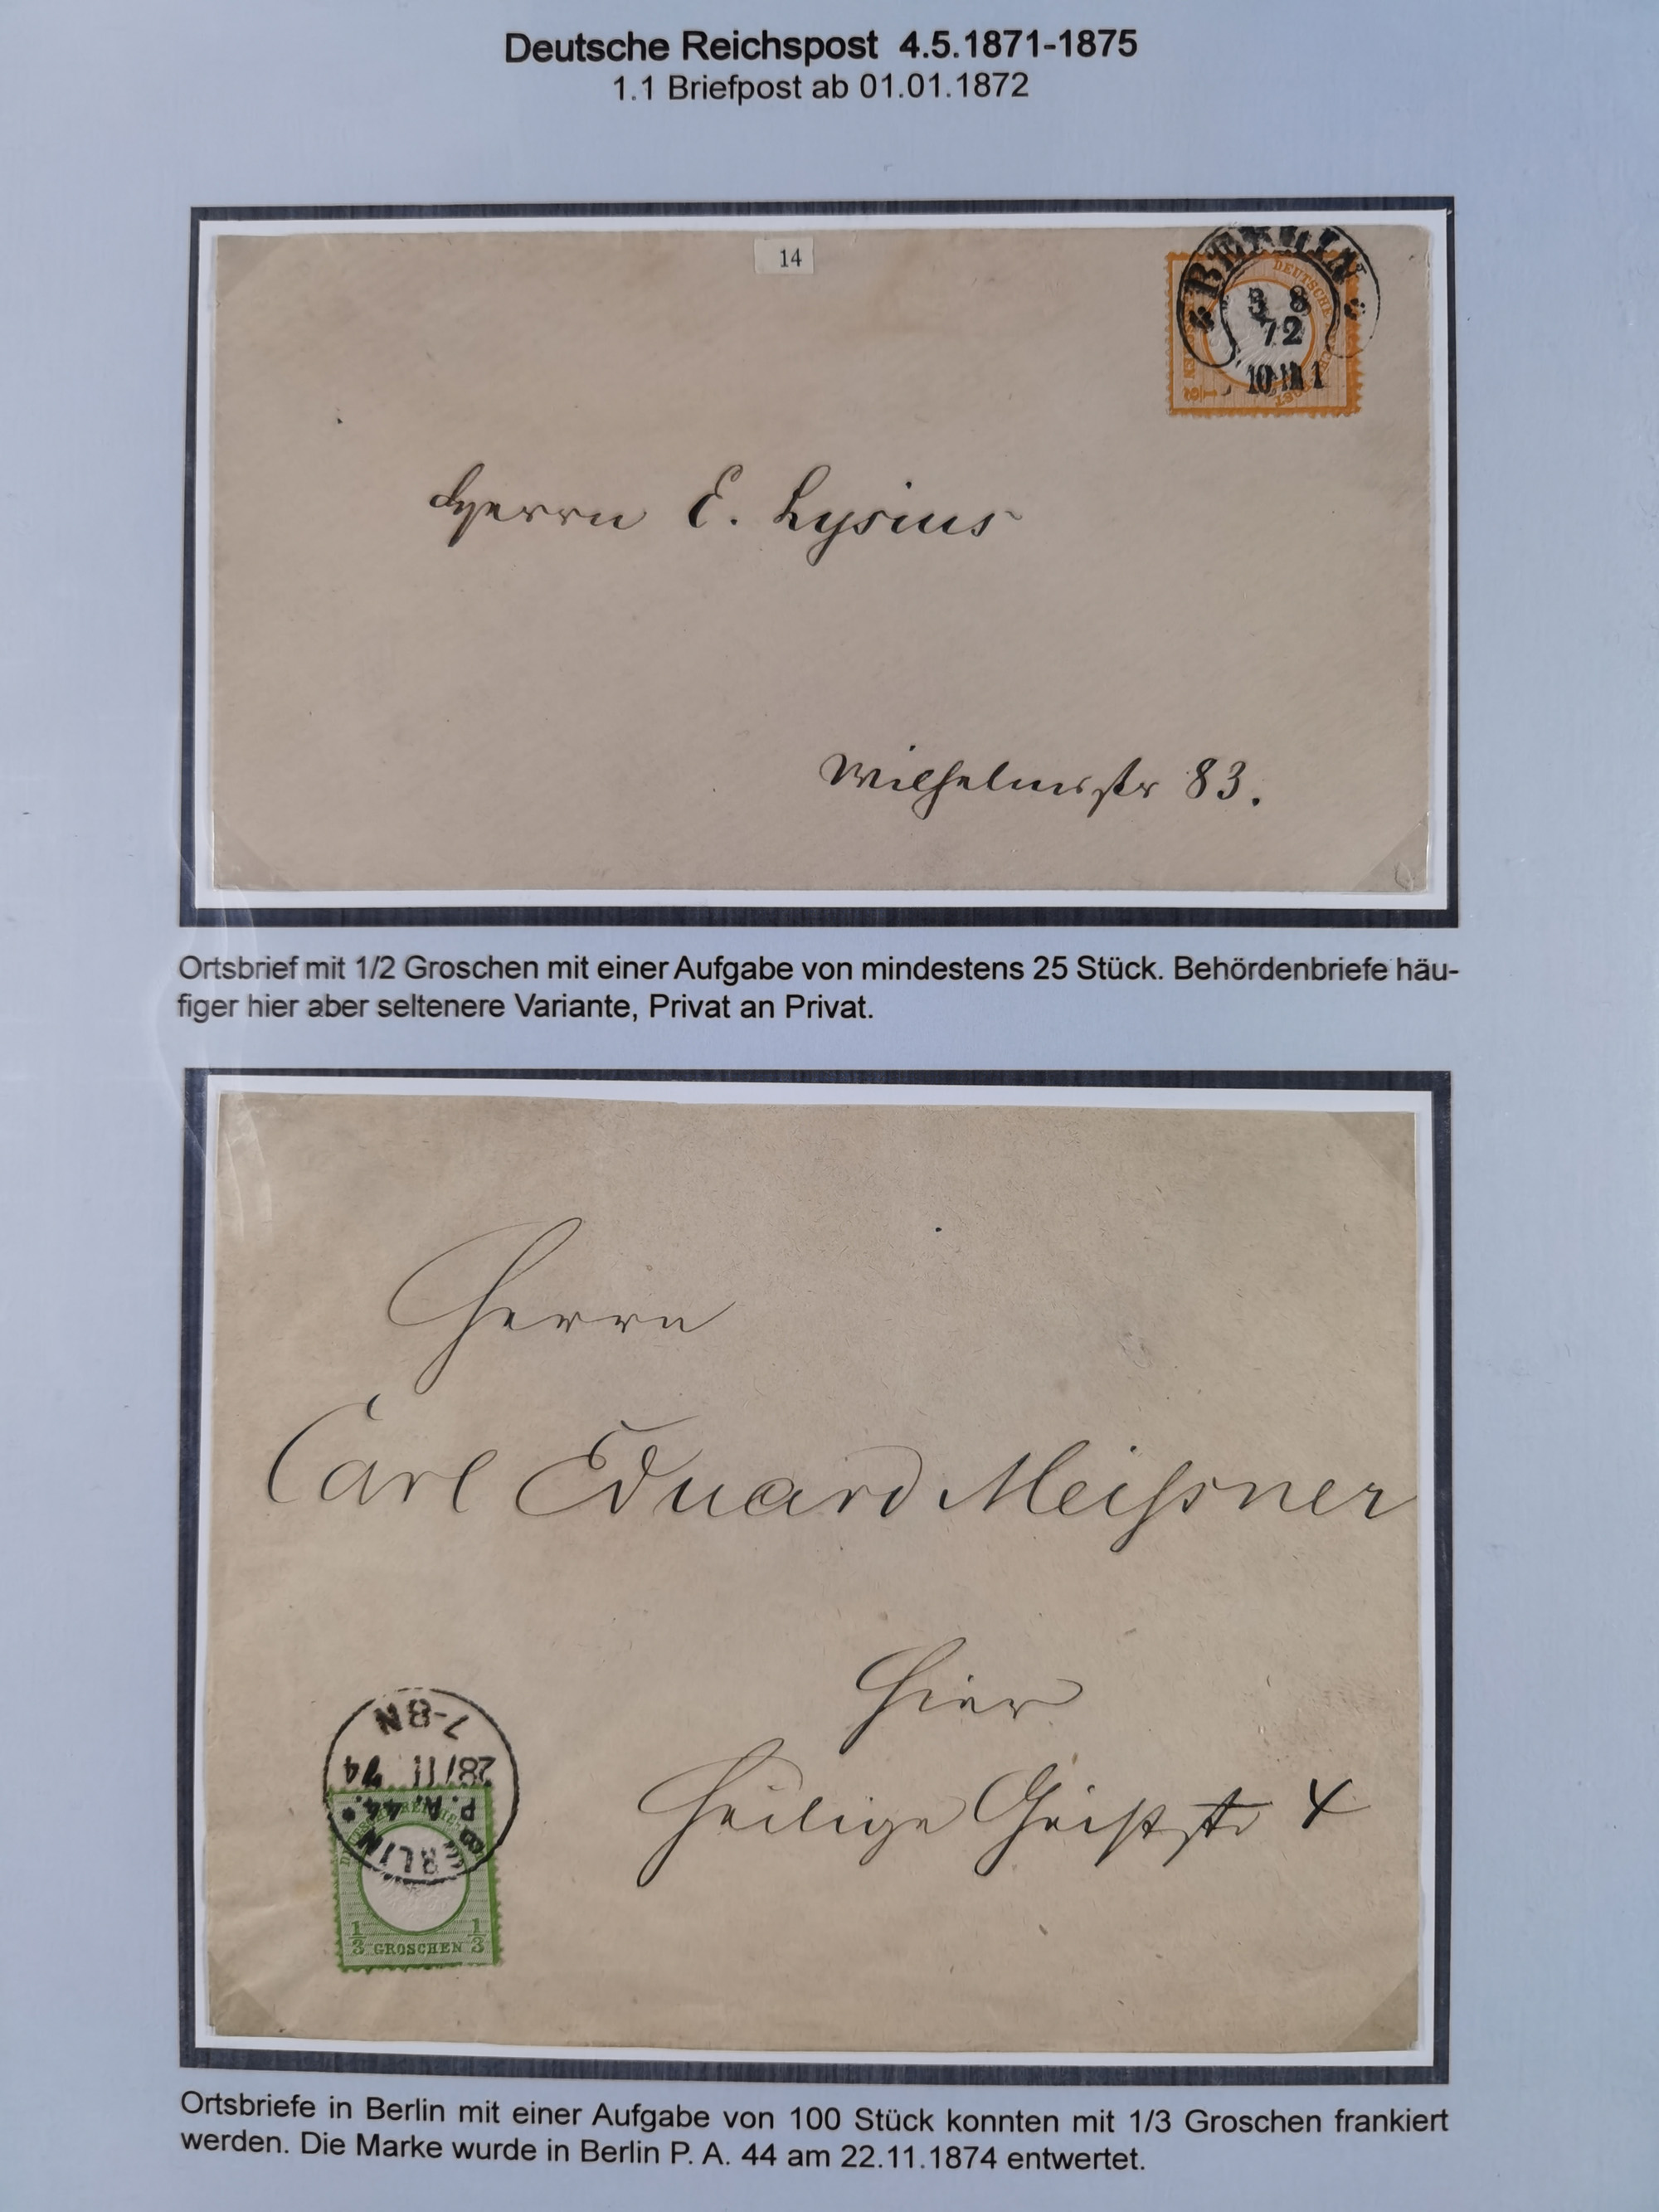 Deutsche Reichspost 4.5.1871-1875
1.1 Briefpost ab 01.01.1872
14
BERLIN
DEUTSCHE
3 8
72
1/2
Herrn E. Lysius
Wilhelmsstr 83.
Ortsbrief mit 1/2 Groschen mit einer Aufgabe von mindestens 25 Stück. Behördenbriefe häu-
figer hier aber seltenere Variante, Privat an Privat.
Herrn
Carl Eduard Meißner
Hier
Heilige Geiststr 4
7-8N
28/11 74
P.A. 44.
BERLIN
1/3 GROSCHEN 1/3
Ortsbriefe in Berlin mit einer Aufgabe von 100 Stück konnten mit 1/3 Groschen frankiert
werden. Die Marke wurde in Berlin P. A. 44 am 22.11.1874 entwertet.